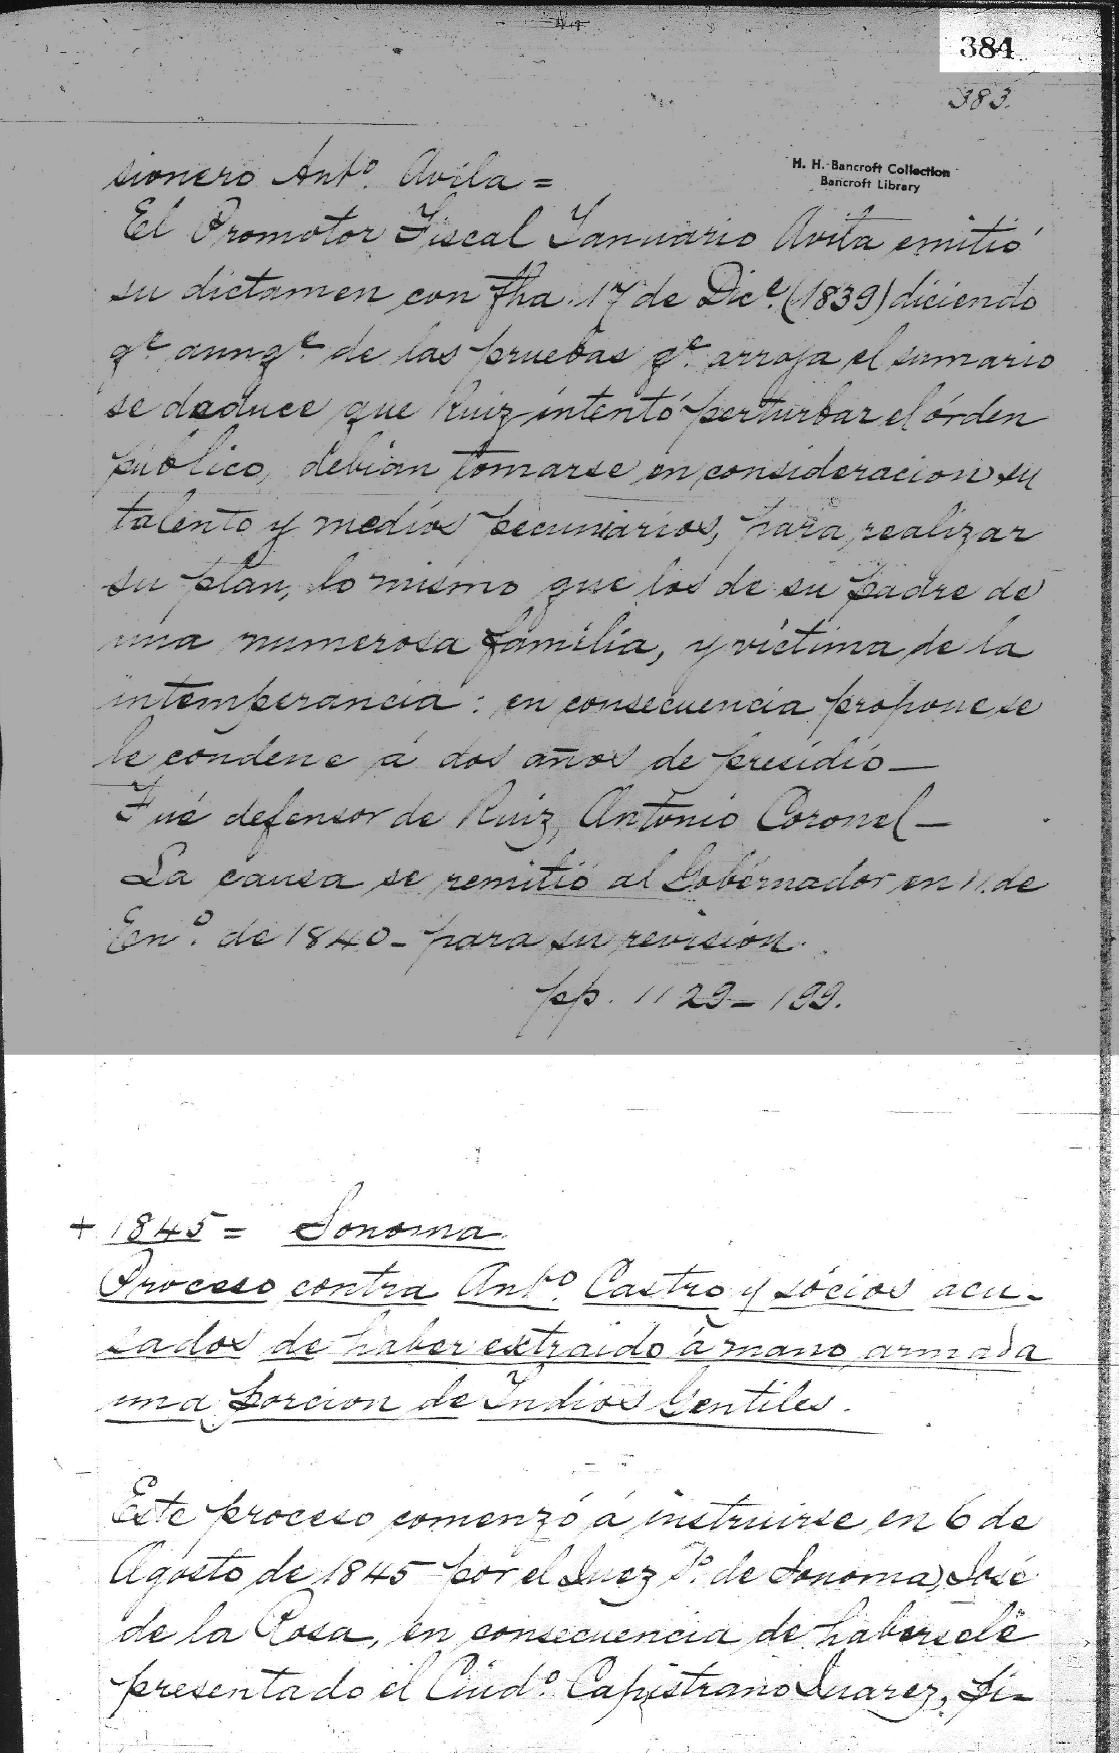 384
383.
H. H. Bancroft Collection
Bancroft Library
sionero Antº. Avila =
El Promotor Fiscal Januario Avila emitió
su dictamen con fha. 17 de Dicᵉ. (1839) diciendo
qᵉ aunqᵉ. de las pruebas qᵉ. arroja el sumario
se deduce que Ruiz intentó perturbar el órden
público, debian tomarse en consideracion su
talento y medios pecuniarios, para realizar
su plan, lo mismo que los de su padre de
una numerosa familia, y victima de la
intemperancia : en consecuencia propone se
le condene á dos años de presidio —
Fué defensor de Ruiz, Antonio Coronel —
La causa se remitió al Gobernador en 11. de
Enº. de 1840 - para su revision.
pp. 1129 - 199.
+ 1845 = Sonoma.
Proceso contra Antº. Castro y sócios acu-
sados de haber extraido á mano armada
una porcion de Indios Gentiles.
Este proceso comenzó á instruirse en 6 de
Agosto de 1845 por el Juez 1º. de Sonoma, José
de la Rosa, en consecuencia de habersele
presentado el Ciudº. Capistrano Juarez, fi-